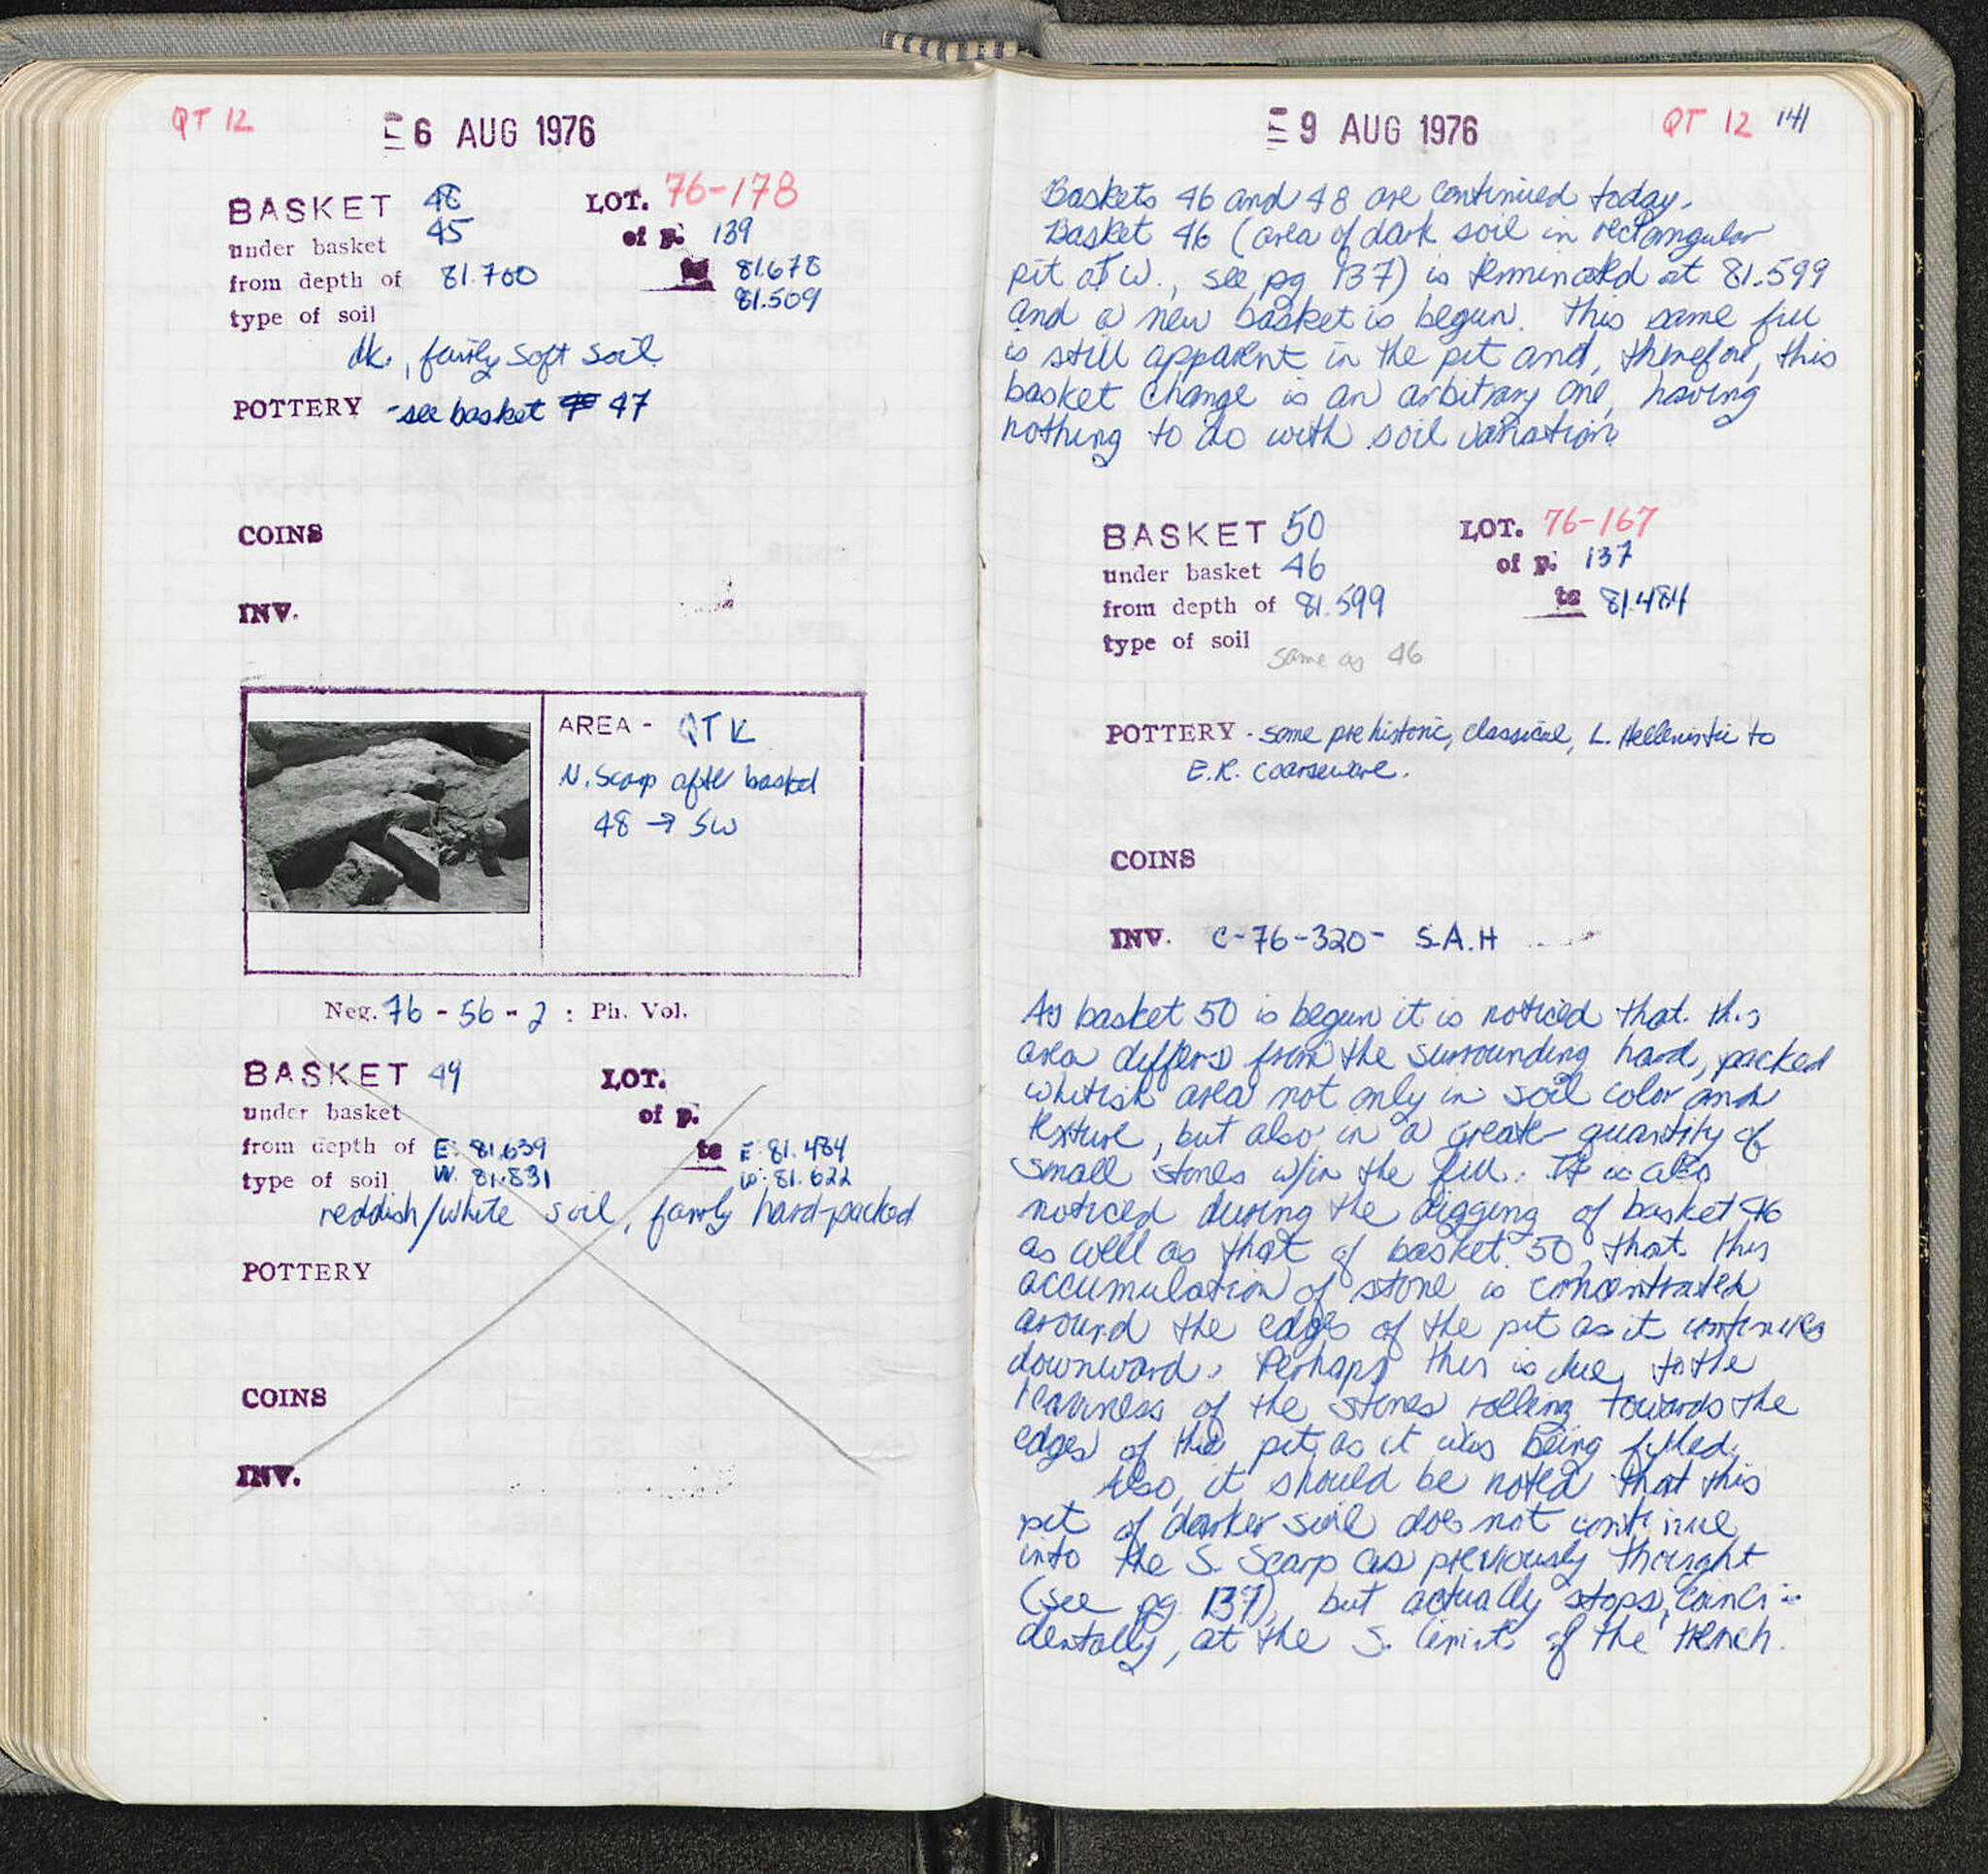 QT 12
6 AUG 1976
BASKET 48 LOT. 76-178
under basket 45 of p. 139
from depth of 81.700 to 81.678
81.509
type of soil
dk., fairly soft soil
POTTERY - see basket # 47
COINS
INV.
AREA - QTK
N. Scarp after basket
48 → SW
Neg. 76 - 56 - 2 : Ph. Vol.
BASKET 49 LOT.
under basket of p.
from depth of E: 81.639 to E: 81.484
type of soil W. 81.831 W: 81.622
reddish/white soil, fairly hard-packed
POTTERY
COINS
INV.
9 AUG 1976 QT 12 141
Baskets 46 and 48 are continued today.
Basket 46 (area of dark soil in rectangular
pit at W., see pg 137) is terminated at 81.599
and a new basket is begun. This same fill
is still apparent in the pit and, therefore, this
basket change is an arbitrary one, having
nothing to do with soil variation.
BASKET 50 LOT. 76-167
under basket 46 of p. 137
from depth of 81.599 to 81.484
type of soil same as 46
POTTERY - some prehistoric, classical, L. Hellenistic to
E.R. coarseware.
COINS
INV. C-76-320- S.A.H
As basket 50 is begun it is noticed that this
area differs from the surrounding hard, packed
whitish area not only in soil color and
texture, but also in a greater quantity of
small stones w/in the fill. It is also
noticed during the digging of basket 46
as well as that of basket 50, that this
accumulation of stone is concentrated
around the edges of the pit as it continues
downward. Perhaps this is due to the
heaviness of the stones rolling towards the
edges of the pit as it was being filled.
Also, it should be noted that this
pit of darker soil does not continue
into the S. Scarp as previously thought
(see pg 137), but actually stops, coinci-
dentally, at the S. limit of the trench.